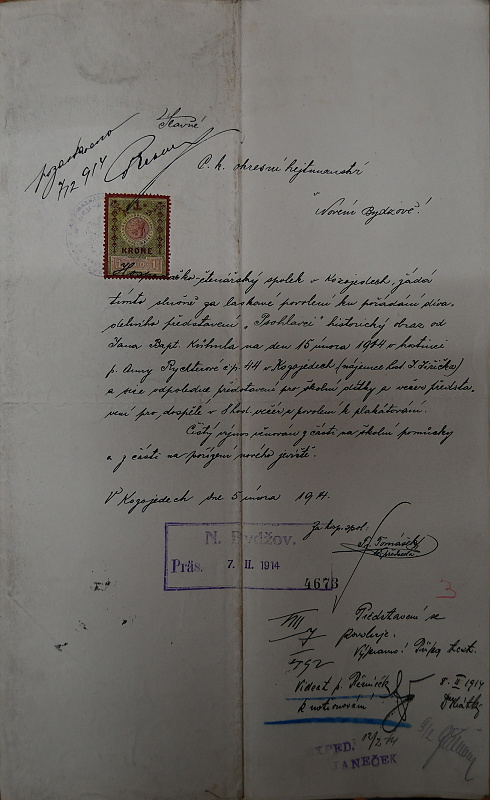 Slavné
7/2 914
C. k. okresní hejtmanství
v Novém Bydžově!
KRONE
1
Hospodářsko-čtenářský spolek v Kozojedech, žádá
tímto slavně za laskavé povolení ku pořádání diva-
delního představení „Psohlavci" historický obraz od
Jana Bapt. Kühnla na den 15 února 1914 v hostinci
p. Anny Rychtrové čp. 44 v Kozojedech (nájemce host. J. Jiřička)
a sice odpoledne představení pro školní dítky a večer předsta-
vení pro dospělé v 8 hod. večer s povolení k plakátování.
Čistý výnos věnován z části na školní pomůcky
a z části na pořízení nového jeviště.
V Kozojedech dne 5 února 1914.
Za hosp. spol:
Tomášek
předseda
N. Bydžov.
Präs. 7. II. 1914
4673
3
Představení se
povoluje.
VIII
7
792
8. II 1914
Vidést p.
k notionování
EXPED. 12/2 14
JANEČEK